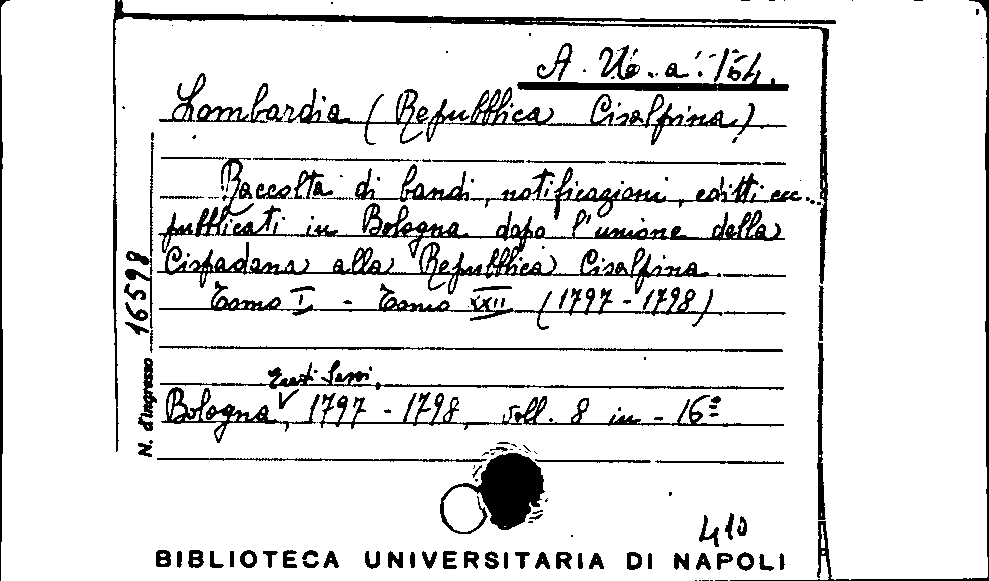 A. Uo. a. 154.
Lombardia (Repubblica Cisalpina)
Raccolta di bandi, notificazioni, editti ecc...
pubblicati in Bologna dopo l'unione della
Cispadana alla Repubblica Cisalpina
Tomo I - Tomo XXII (1797 - 1798)
Sassi,
Bologna, 1797 - 1798, voll. 8 in - 16º
N. d'ingresso 16598
410
BIBLIOTECA UNIVERSITARIA DI NAPOLI